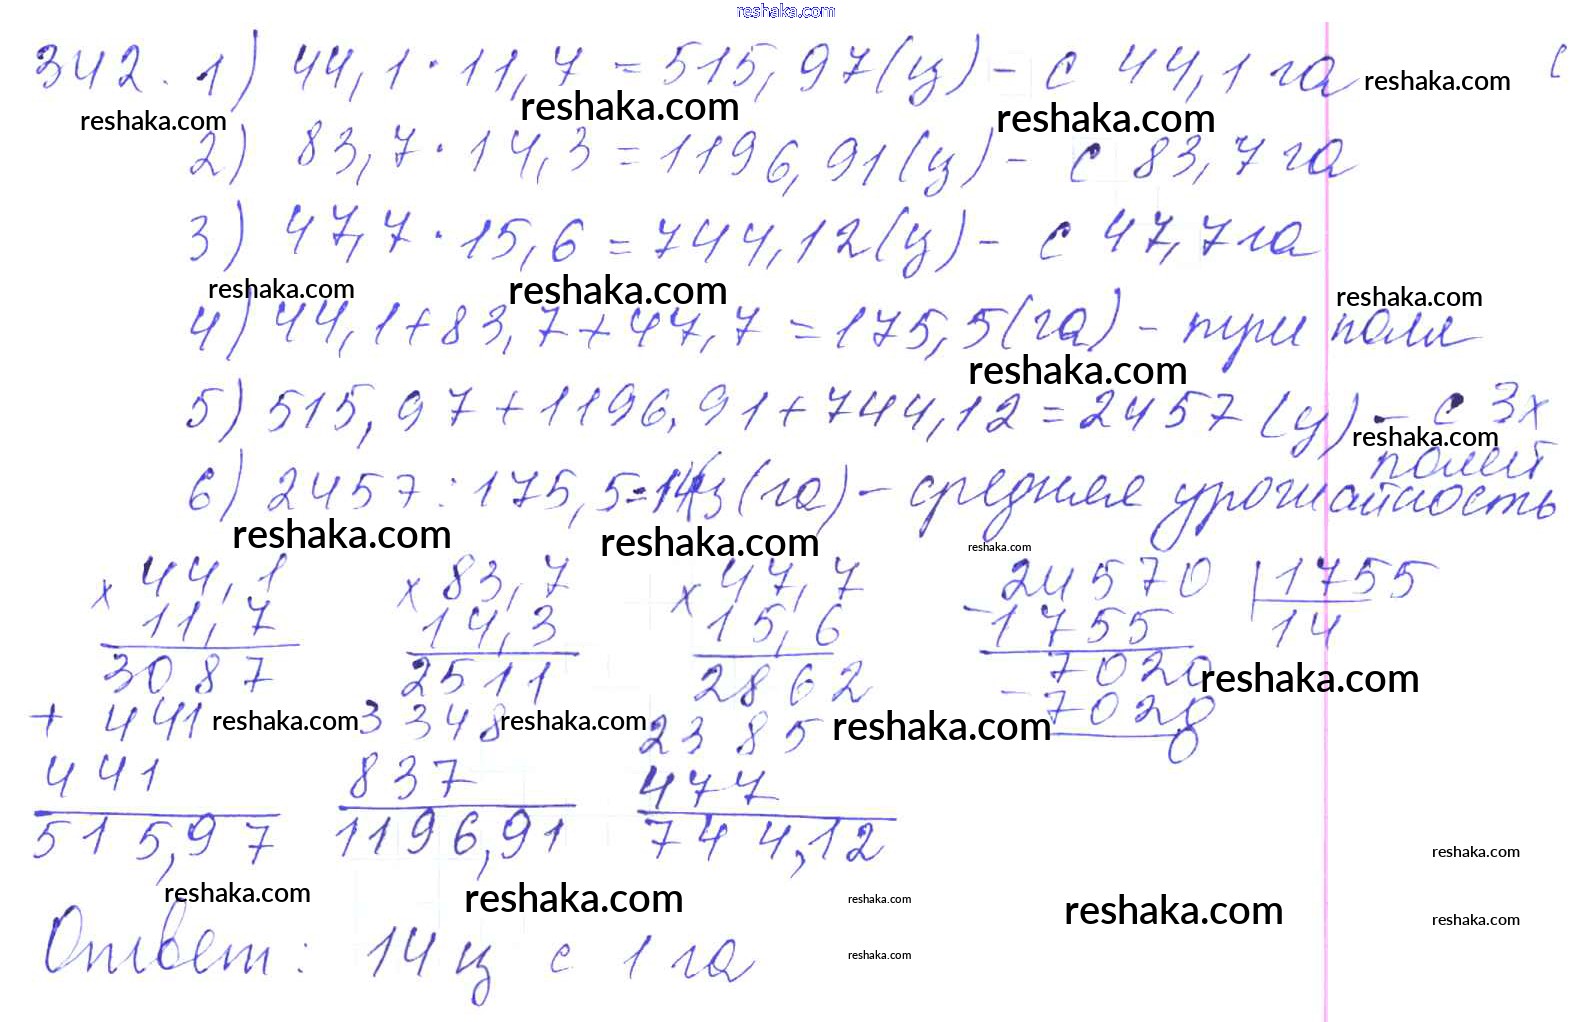 reshaka.com
342. 1) 44,1 · 11,7 = 515,97 (ц) – с 44,1 га
reshaka.com
reshaka.com reshaka.com reshaka.com
2) 83,7 · 14,3 = 1196,91 (ц) – с 83,7 га
3) 47,7 · 15,6 = 744,12 (ц) – с 47,7 га
reshaka.com reshaka.com reshaka.com
4) 44,1 + 83,7 + 47,7 = 175,5 (га) – три поля
reshaka.com
5) 515,97 + 1196,91 + 744,12 = 2457 (ц) – с 3х
reshaka.com
полей
6) 2457 : 175,5 = 14 (га) – средняя урожайность
reshaka.com reshaka.com reshaka.com
× 44,1 × 83,7 × 47,7 24570 | 1755
11,7 14,3 15,6 – 1755 14
3087 2511 2862 7020 reshaka.com
+ 441 reshaka.com 3348 reshaka.com 2385 reshaka.com – 7020
0
441 837 477
515,97 1196,91 744,12
reshaka.com
reshaka.com reshaka.com reshaka.com reshaka.com reshaka.com
Ответ: 14 ц с 1 га
reshaka.com